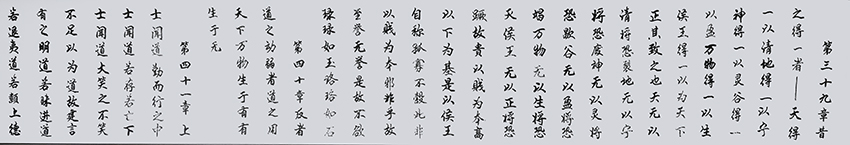 第三十九章昔
之得一者——天得
一以清地得一以宁
神得一以灵谷得一
以盈万物得一以生
侯王得一以为天下
正其致之也天无以
清将恐裂地无以宁
将恐废神无以灵将
恐歇谷无以盈将恐
竭万物无以生将恐
灭侯王无以正将恐
蹶故贵以贱为本高
以下为基是以侯王
自称孤寡不毂此非
以贱为本邪非乎故
至誉无誉是故不欲
琭琭如玉珞珞如石
第四十章反者
道之动弱者道之用
天下万物生于有有
生于无
第四十一章上
士闻道勤而行之中
士闻道若存若亡下
士闻道大笑之不笑
不足以为道故建言
有之明道若昧进道
若退夷道若颣上德